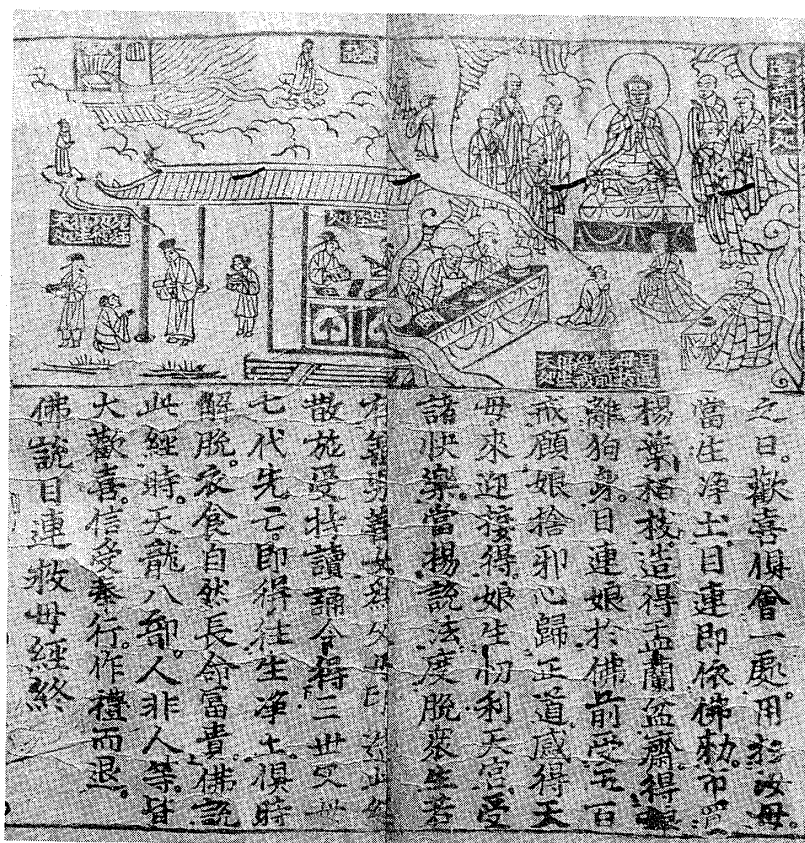 之日。歡喜俱會一處。用扵汝母。
當生净土。目連即依佛勑。市買
楊葉栢枝。造得盂蘭盆齋得
離狗身。目連娘扵佛前受五百
戒。願娘捨邪心歸正道。感得天
母來迎接。得娘生忉利天宮。受
諸快樂。當楊說法度脫衆生。若
有善男善女。爲父母印造此經。
散施受持讀誦。令得三世父母。
七代先亡。即得往生净土。俱時
解脫。衣食自然。長命冨貴。佛說
此經時。天龍八部。人非人等。皆
大歡喜。信受奉行。作禮而退。
佛說目連救母經終